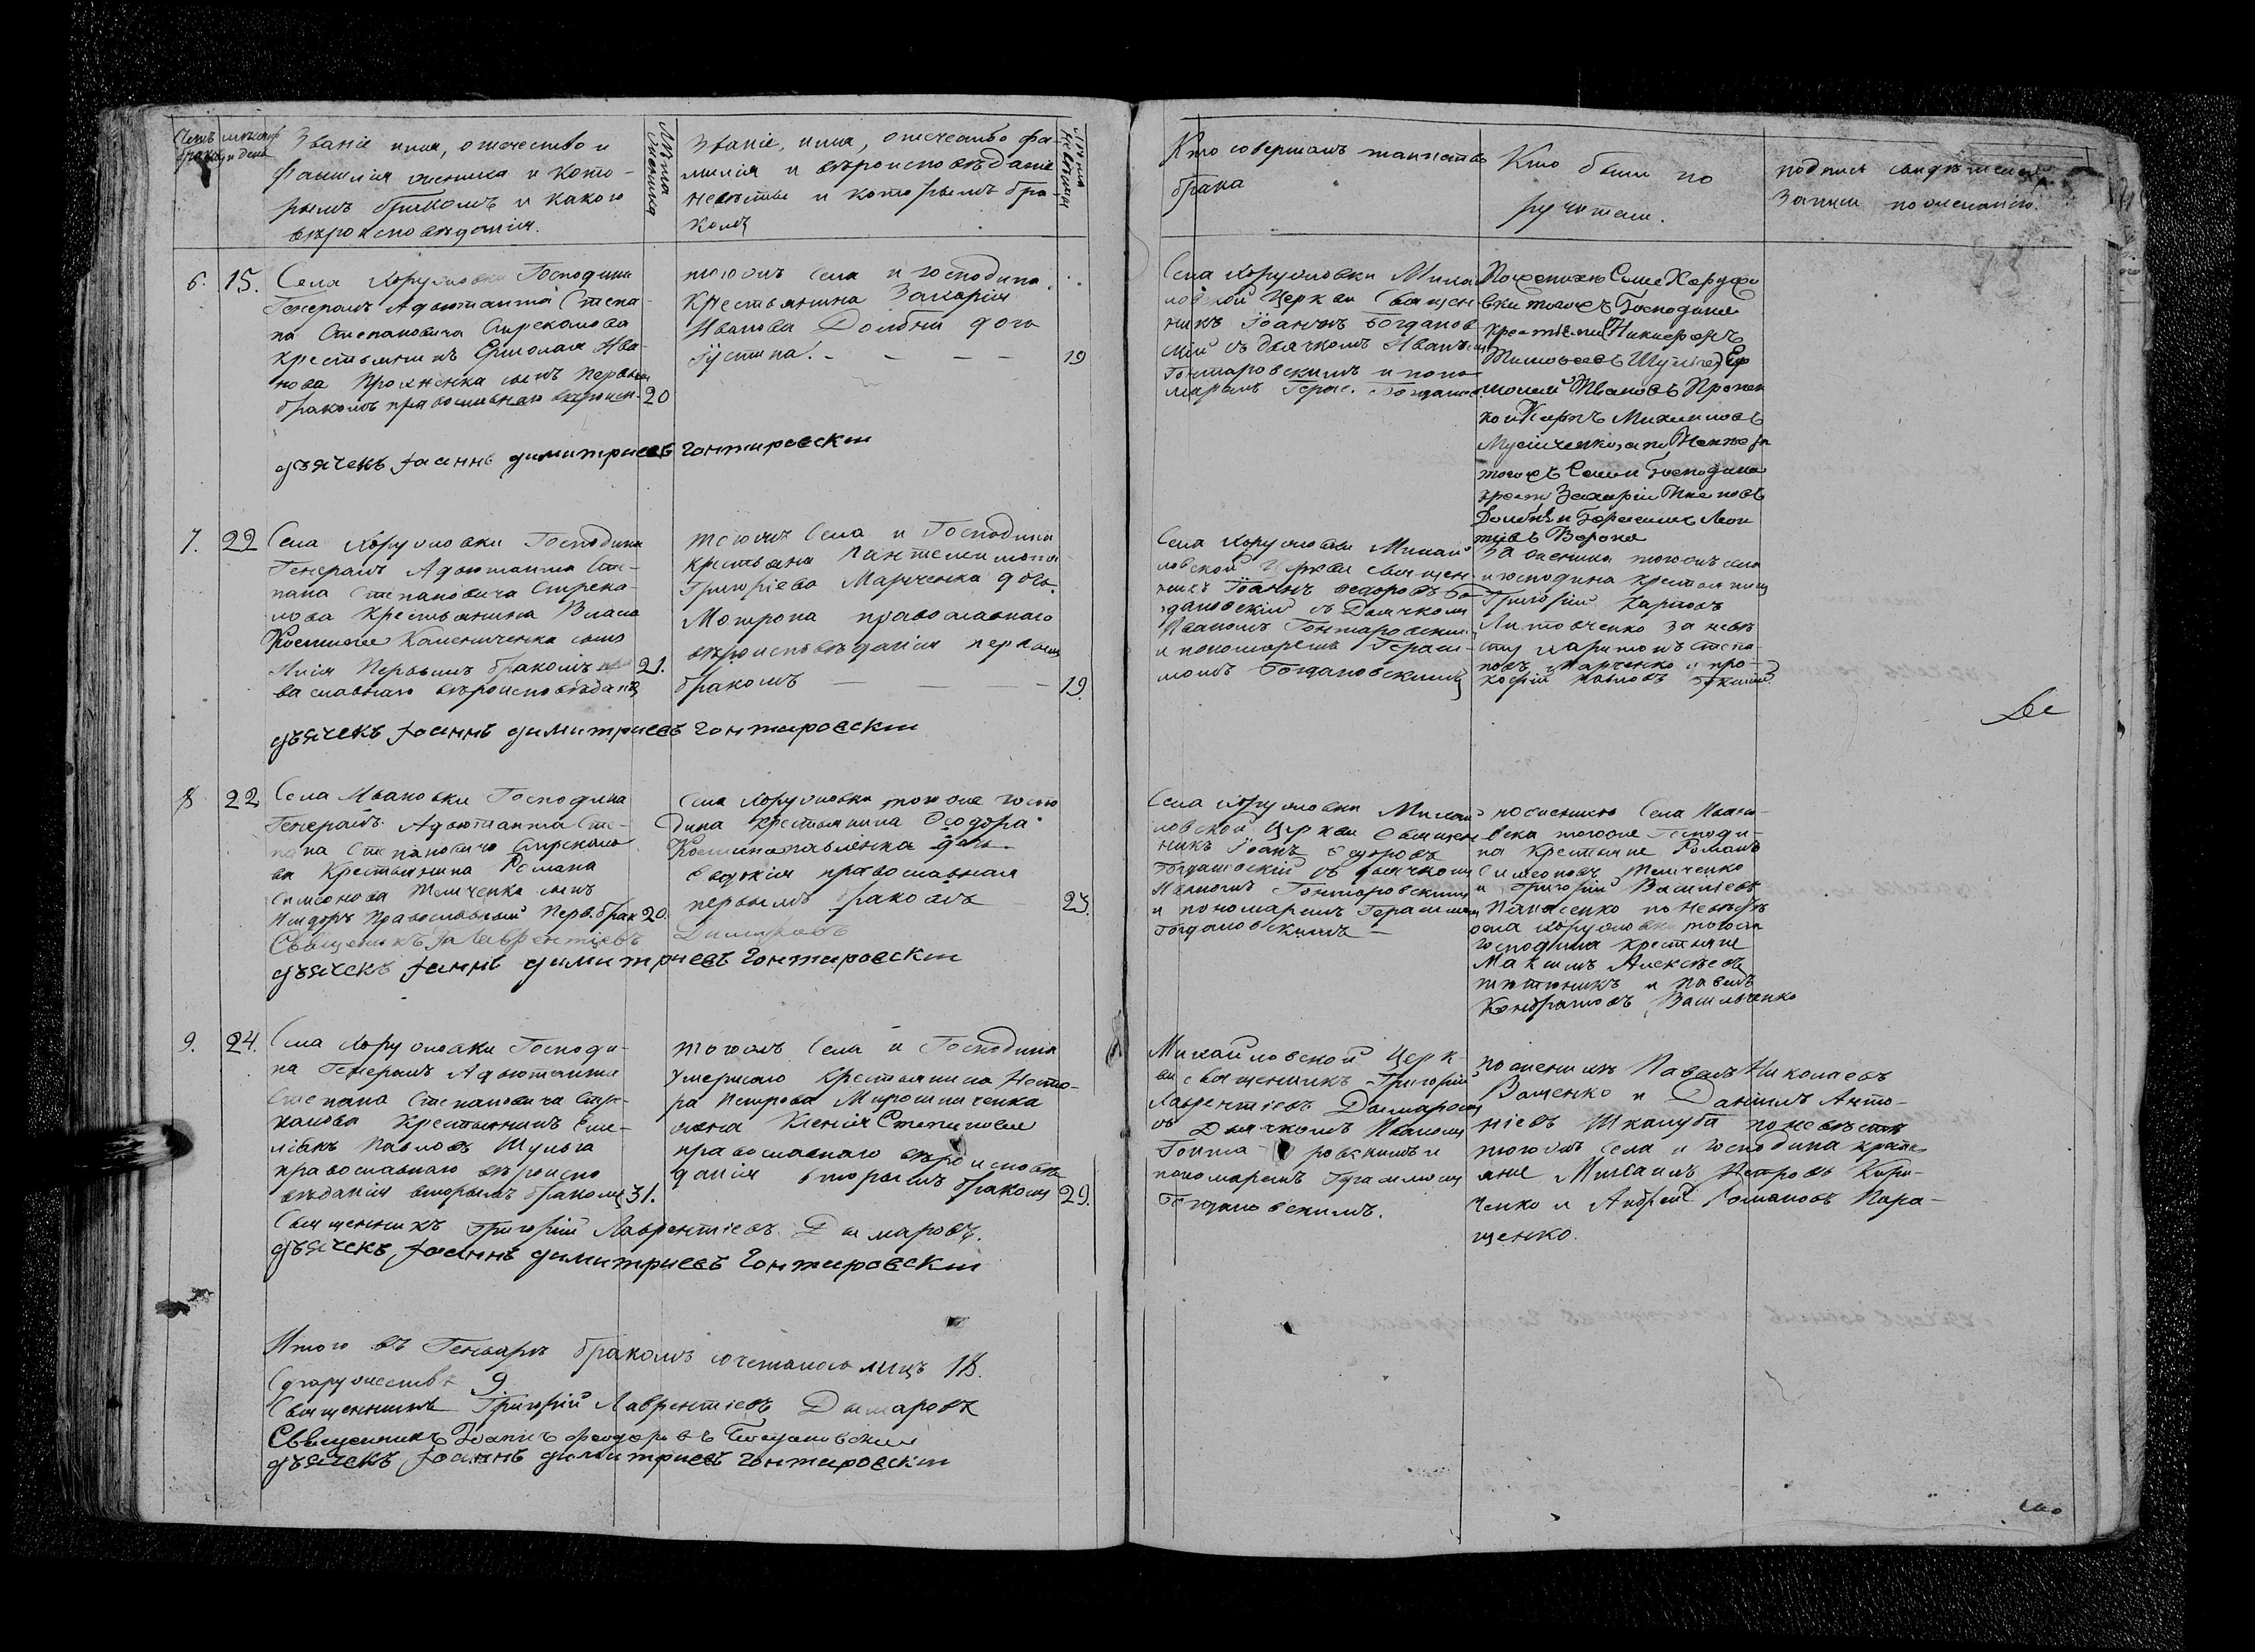 Счетъ браковъ
мѣсяцъ и день
Званіе имя, отечество и
фамилія жениха и кото-
рымъ бракомъ и какого
вѣроисповѣданія.
Лѣта жениха
Званіе, имя, отечество фа-
милія и вѣроисповѣданіе
невѣсты и которымъ бра-
комъ
Лѣта невѣсты
Кто совершалъ таинство
брака
Кто были по
ручители.
подпись свидѣтелей
записи по желанію.
6. 15.
Села Хоружовки Господина
Генералъ Адъютанта Степа-
на Степановича Стрекалова
крестьянинъ Ермолая Ива-
нова Прохненка сынъ первымъ
бракомъ православнаго вѣроисп.
20
тогожъ Села и господина
Крестьянина Захарія
Иванова Долбни дочь
Іустина. - - - -
19
Села Хоружовки Михай
ловской Церкви Священ-
никъ Іоаннъ Богданов
скій съ дьячкомъ Иваномъ
Гонтаровскимъ и поно-
маремъ Герас. Богданов.
По женихѣ Села Хоружо
вки тогожъ Господина
крестьяни Никифоръ
Тимофеевъ Ер
молай Ивановъ Прохнен
ко и Карпъ Михайловъ
Мусійченко, а по Невѣ
тогожъ Села и Господина
крести Захарій Ивановъ
Долбня и Герасимъ Леон
тіевъ Ворона
дъячекъ Іоаннъ димитриевъ Гонтаровскій
7. 22
Села Хоружовки Господина
Генералъ Адъютанта Сте-
пана Степановича Стрека-
лова Крестьянина Власа
Каленниченка сынъ
первымъ бракомъ пра
вославнаго вѣроисповѣданія
21.
тогожъ Села и Господина
крестьяна Пантелимона
Григоріева Марченка дочь
Мотрона православнаго
вѣроисповѣданія первымъ
бракомъ — — —
19.
Села Хоружовки Михай
ловской Церкви священ-
никъ Іоаннъ Федоровъ Бо
гдановскій съ Дьячкомъ
Иваномъ Гонтаровскимъ
и пономаремъ Гераси-
момъ Богдановскимъ
За жениха тогожъ села
и господина крестьянинъ
Григорій Карповъ
Литовченко за невѣ
сту Харитонъ Степа
новъ Марченко и про-
кофій Павловъ
дъячекъ Іоаннъ димитриевъ Гонтаровскій
8. 22
Села Ивановки Господина
Генералъ Адъютанта Сте-
пана Степановича Стрекало
ва Крестьянина Романа
Симеонова Темченка сынъ
Исидоръ Православный Перв. брак
20.
Села Хоружовки тогоже госпо
дина крестьянина Феодора
Павленка дочь
Евдокія православная
первымъ бракомъ
23.
Села Хоружовки Михай
ловской Церкви Священ
никъ Іоанъ Федоровъ
Богдановскій съ дьячкомъ
Иваномъ Гонтаровскимъ
и пономаремъ Герасимомъ
Богдановскимъ —
по женихѣ Села Ивано-
вска тогоже Господи-
на Крестьяне Романъ
Симеоновъ Темченко
и Григорій Васильевъ
Панасенко по Невѣстѣ
села Хоружовки тогожъ
господина крестьяне
Максимъ Алексѣевъ
тютюникъ и павелъ
Кондратовъ Васильченко
Священникъ Гр Лаврентіевъ Дымаровъ
дъячекъ Іоаннъ димитриевъ Гонтаровскій
9. 24.
Села Хоружовки Господи-
на Генералъ Адъютанта
Степана Степановича Стре-
калова Крестьянинъ Еме-
ліанъ Павловъ Шульга
православнаго вѣроиспо
вѣданія вторымъ бракомъ
31.
тогожъ Села и Господина
умершаго Крестьянина Несто-
ра Петрова Мирошниченка
жена Ксенія Степанова
православнаго вѣроисповѣ
данія вторымъ бракомъ
29.
Михайловской Церк-
ви священникъ Григорій
Лаврентіевъ Дымаровъ
съ Дьячкомъ Иваномъ
Гонта-ровскимъ и
пономаремъ Герасимомъ
Богдановскимъ.
по женихѣ Павелъ Николаевъ
Ващенко и Даніилъ Анто-
ніевъ Шкалуба по невѣстѣ
тогожъ Села и господина крестья
яне Михаилъ Петровъ Кири-
ченко и Андрей Романовъ Пара-
щенко.
Священникъ Григорій Лаврентіевъ Дымаровъ.
дъячекъ, Іоаннъ димитриевъ Гонтаровскій
Итого въ Генварѣ бракомъ сочеталось лицъ 18.
Супружествъ 9
Священникъ Григорій Лаврентіевъ Дымаровъ
Священникъ Іоаннъ феодоровъ Богдановскій
дъячекъ Іоаннъ димитриевъ Гонтаровскій